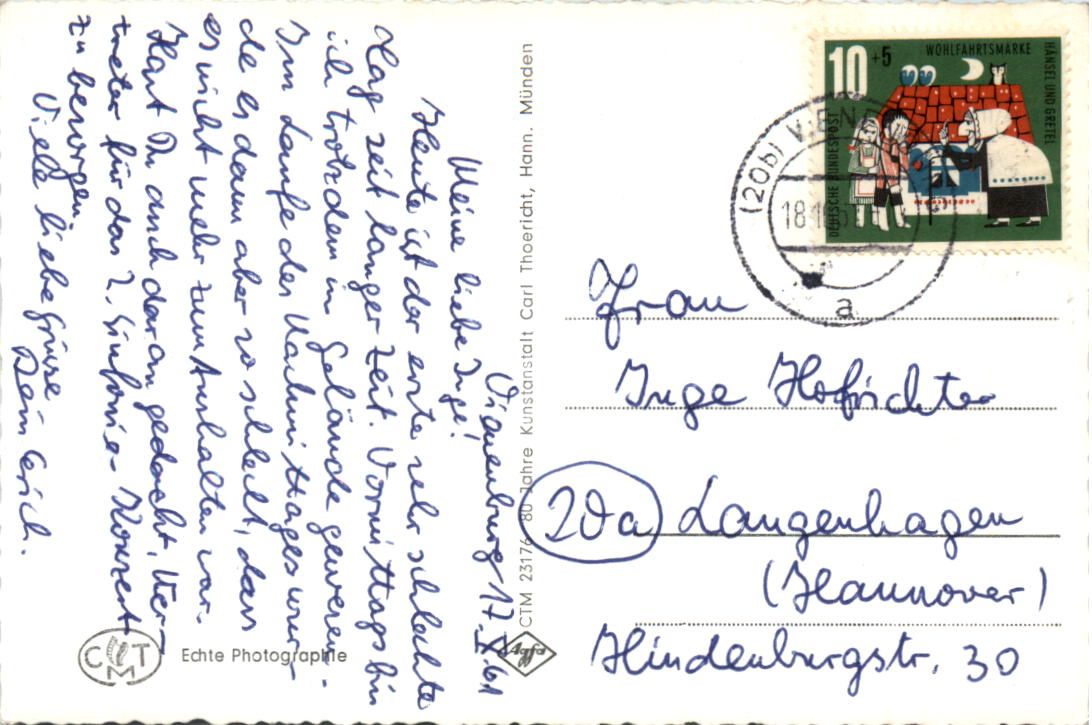 Vienenburg 17.X.61
Meine liebe Inge!
Heute ist der erste sehr schlechte
Tag seit langer Zeit. Vormittags bin
ich trotzdem im Gelände gewesen.
Im Laufe des Nachmittages wur-
de es dann aber so schlecht, dass
es nicht mehr zum Aushalten war.
Hast Du auch daran gedacht, Ver-
treter für das 2. Sinfonie-Konzert
zu besorgen
Viele liebe Grüsse
Dein Erich.
CTM 23176 80 Jahre Kunstanstalt Carl Thoericht, Hann. Münden
Agfa
CMT
Echte Photographie
10 +5
WOHLFAHRTSMARKE
HÄNSEL UND GRETEL
DEUTSCHE BUNDESPOST
(20b) VIENE
18.10.61
a
Frau
Inge Hofrichter
20a Langenhagen
(Hannover)
Hindenburgstr. 30